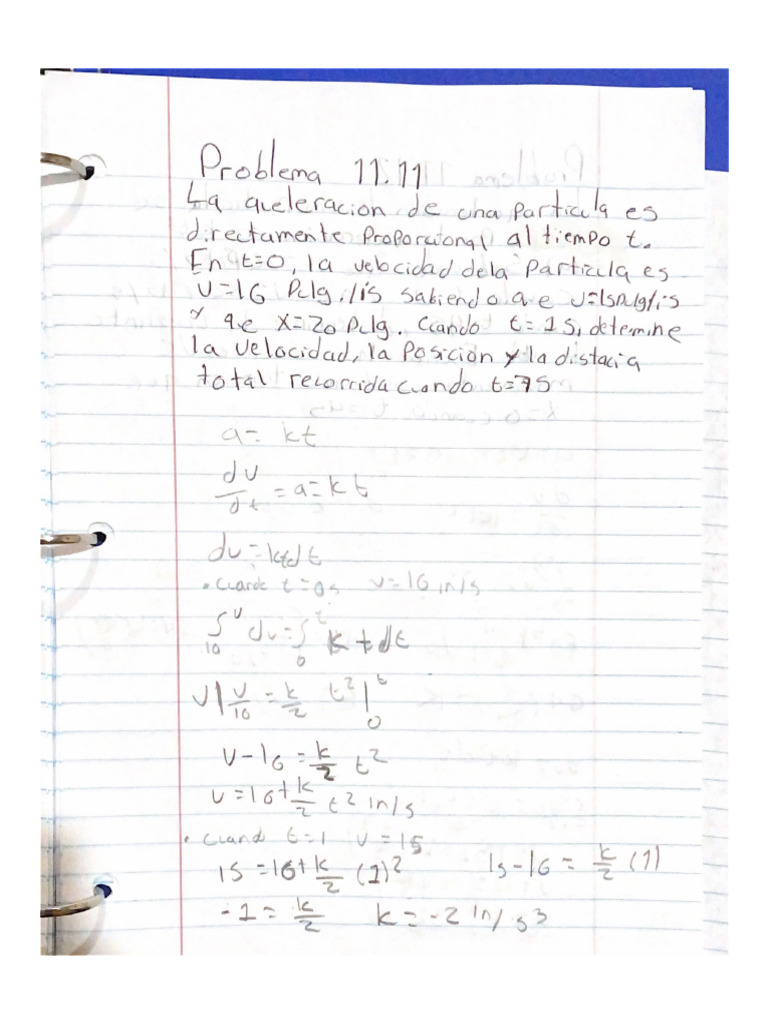 Problema 11.11
La aceleracion de una particula es
directamente Proporcional al tiempo t.
En t=0, la velocidad dela Particula es
v=16 Pulg./s sabiendo que v=15pulg/s
y que x=20 Pulg. Cuando t=1s, determine
la velocidad, la Posicion y la distacia
total recorrida cuando t=7s
a= kt
dv/dt = a = k t
dv = ktdt
• cuando t=0s v=16 in/s
∫₁₀ᵛ dv = ∫₀ᵗ k t dt
v|ᵛ₁₀ = k/2 t²|ᵗ₀
v-16 = k/2 t²
v=16+k/2 t² in/s
• cuand t=1 v=15
15 =16+k/2 (1)² 15-16 = k/2 (1)
-1 = k/2 k=-2 in/s³